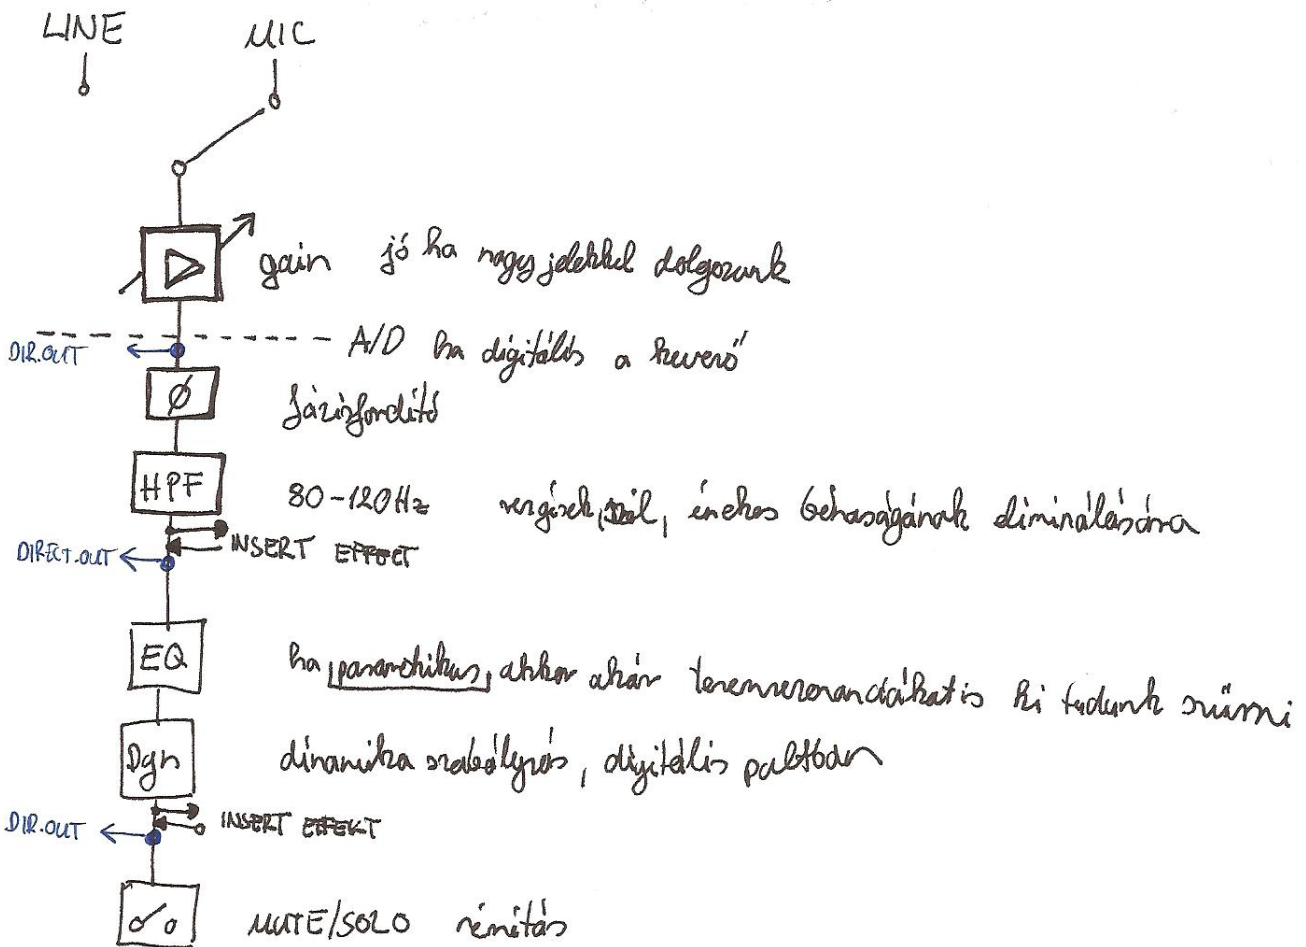 LINE MIC
gain jó ha nagy jelekkel dolgozunk
A/D ha digitális a keverő
DIR.OUT
ϕ fázisfordító
HPF 80-120Hz rezgések, szél, énekes behaságának eliminálására
INSERT EFFECT
DIRECT.OUT
EQ ha parametrikus, akkor akár teremrezonanciákat is ki tudunk szűrni
Dyn dinamika szabályzás, digitális pultban
INSERT EFFEKT
DIR.OUT
MUTE/SOLO némítás